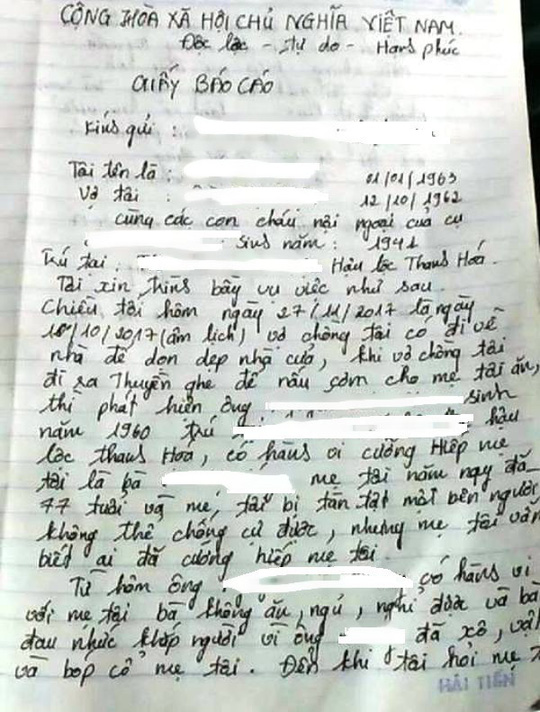 CỘNG HÒA XÃ HỘI CHỦ NGHĨA VIỆT NAM.
Độc lộc - tự do - Hạnh phúc
GIẤY BÁO CÁO
Kính gửi :
Tôi tên là : 01/01/1963
Vợ tôi : 12/10/1962
cùng các con cháu nội ngoại của cụ
sinh năm : 1941
Trú tại : Hậu lộc Thanh Hoá.
Tôi xin trình bày vụ việc như sau.
Chiều tối hôm ngày 27/11/2017 là ngày
10/10/2017 (âm lịch), vợ chồng tôi có đi về
nhà để dọn dẹp nhà cửa, khi vợ chồng tôi
đi ra Thuyền ghe để nấu cơm cho mẹ tôi ăn,
thì phát hiện ông, sinh
năm 1960 trú hậu
lộc thanh Hoá, có hành vi cưỡng Hiếp mẹ
tôi là bà mẹ tôi năm nay đã
77 tuổi và mẹ, tôi bị tàn tật một bên người
không thể chống cự được, nhưng mẹ tôi vẫn
biết ai đã cưỡng hiếp mẹ tôi.
Từ hôm ông có hành vi
với mẹ tôi bà không ăn, ngủ, nghỉ được và bà
đau nhức khắp người vì ông đã xô, vật
và bóp cổ mẹ tôi. Đến khi tôi hỏi mẹ
HẢI TIẾN